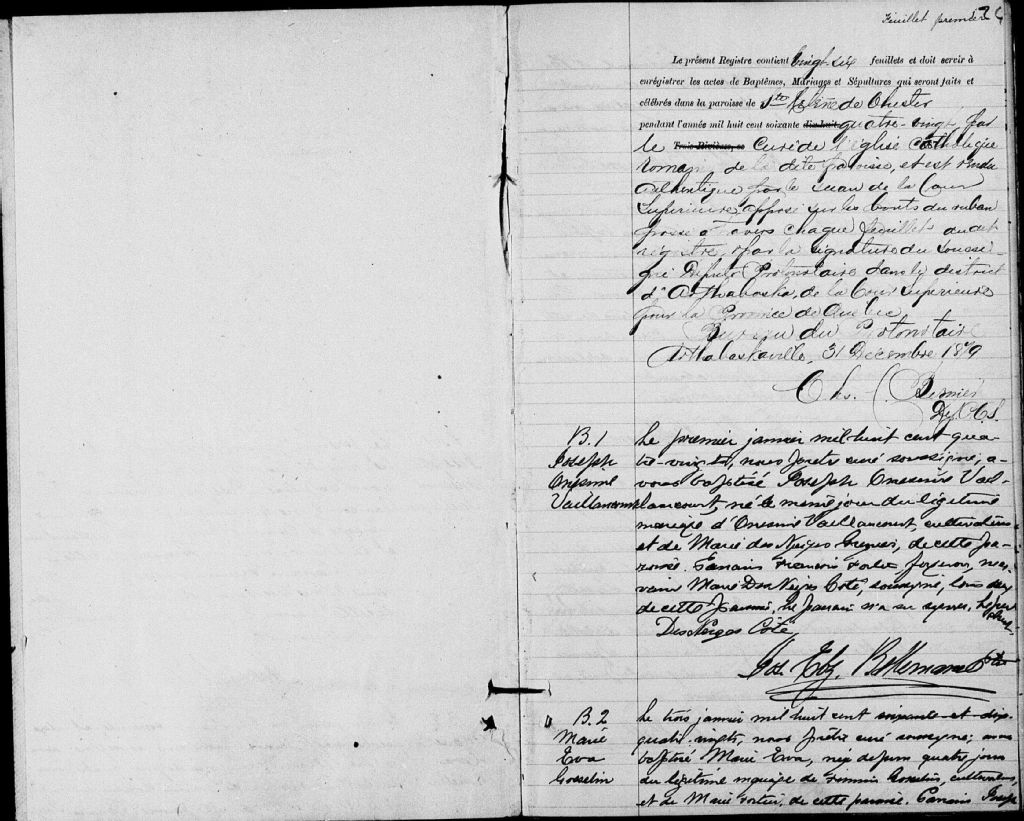 Feuillet premier
Le présent Registre contient vingt-six feuillets et doit servir à
enrégistrer les actes de Baptêmes, Mariages et Sépultures qui seront faits et
célébrés dans la paroisse de Ste Hélène de Chester
pendant l'année mil huit cent soixante dix-huit, quatre-vingt par
le Trois-Rivières, ce Curé de l'église catholique
romain de la dite paroisse, et est rendu
authentique par le sceau de la Cour
Supérieure, apposé sur les bouts du ruban
passé à travers chaque feuillet du dit
registre, par la signature du soussi-
gné Député Protonotaire dans le district
d'Arthabaska, de la Cour Supérieure
pour la Province de Québec
Bureau du Protonotaire
Arthabaskaville, 31 Décembre 1879
Chs. Bernier
Dep. P.C.S.
B. 1
Joseph
Onesime
Vaillancourt
Le premier janvier mil huit cent qua-
tre-vingts, nous prêtre curé soussigné, a-
vons baptisé Joseph Onesime Vail-
lancourt, né le même jour du légitime
mariage d'Onesime Vaillancourt, cultivateur
et de Marie des Neiges, de cette pa-
roisse. Parrain François Fortier, forgeron, mar-
raine Marie Des Neiges Coté, soussigné, tous deux
de cette paroisse, le parrain n'a su signer.
DesNeiges Côté
Jos. Elz. Bellemare Ptre
B. 2
Marie
Eva
Gosselin
Le trois janvier mil huit cent soixante-et-dix
quatre vingts, nous prêtre curé soussigné, avons
baptisé Marie Eva, née depuis quatre jours
du légitime mariage de Gosselin, cultivateur,
et de Marie Fortier, de cette paroisse. Parrain Joseph